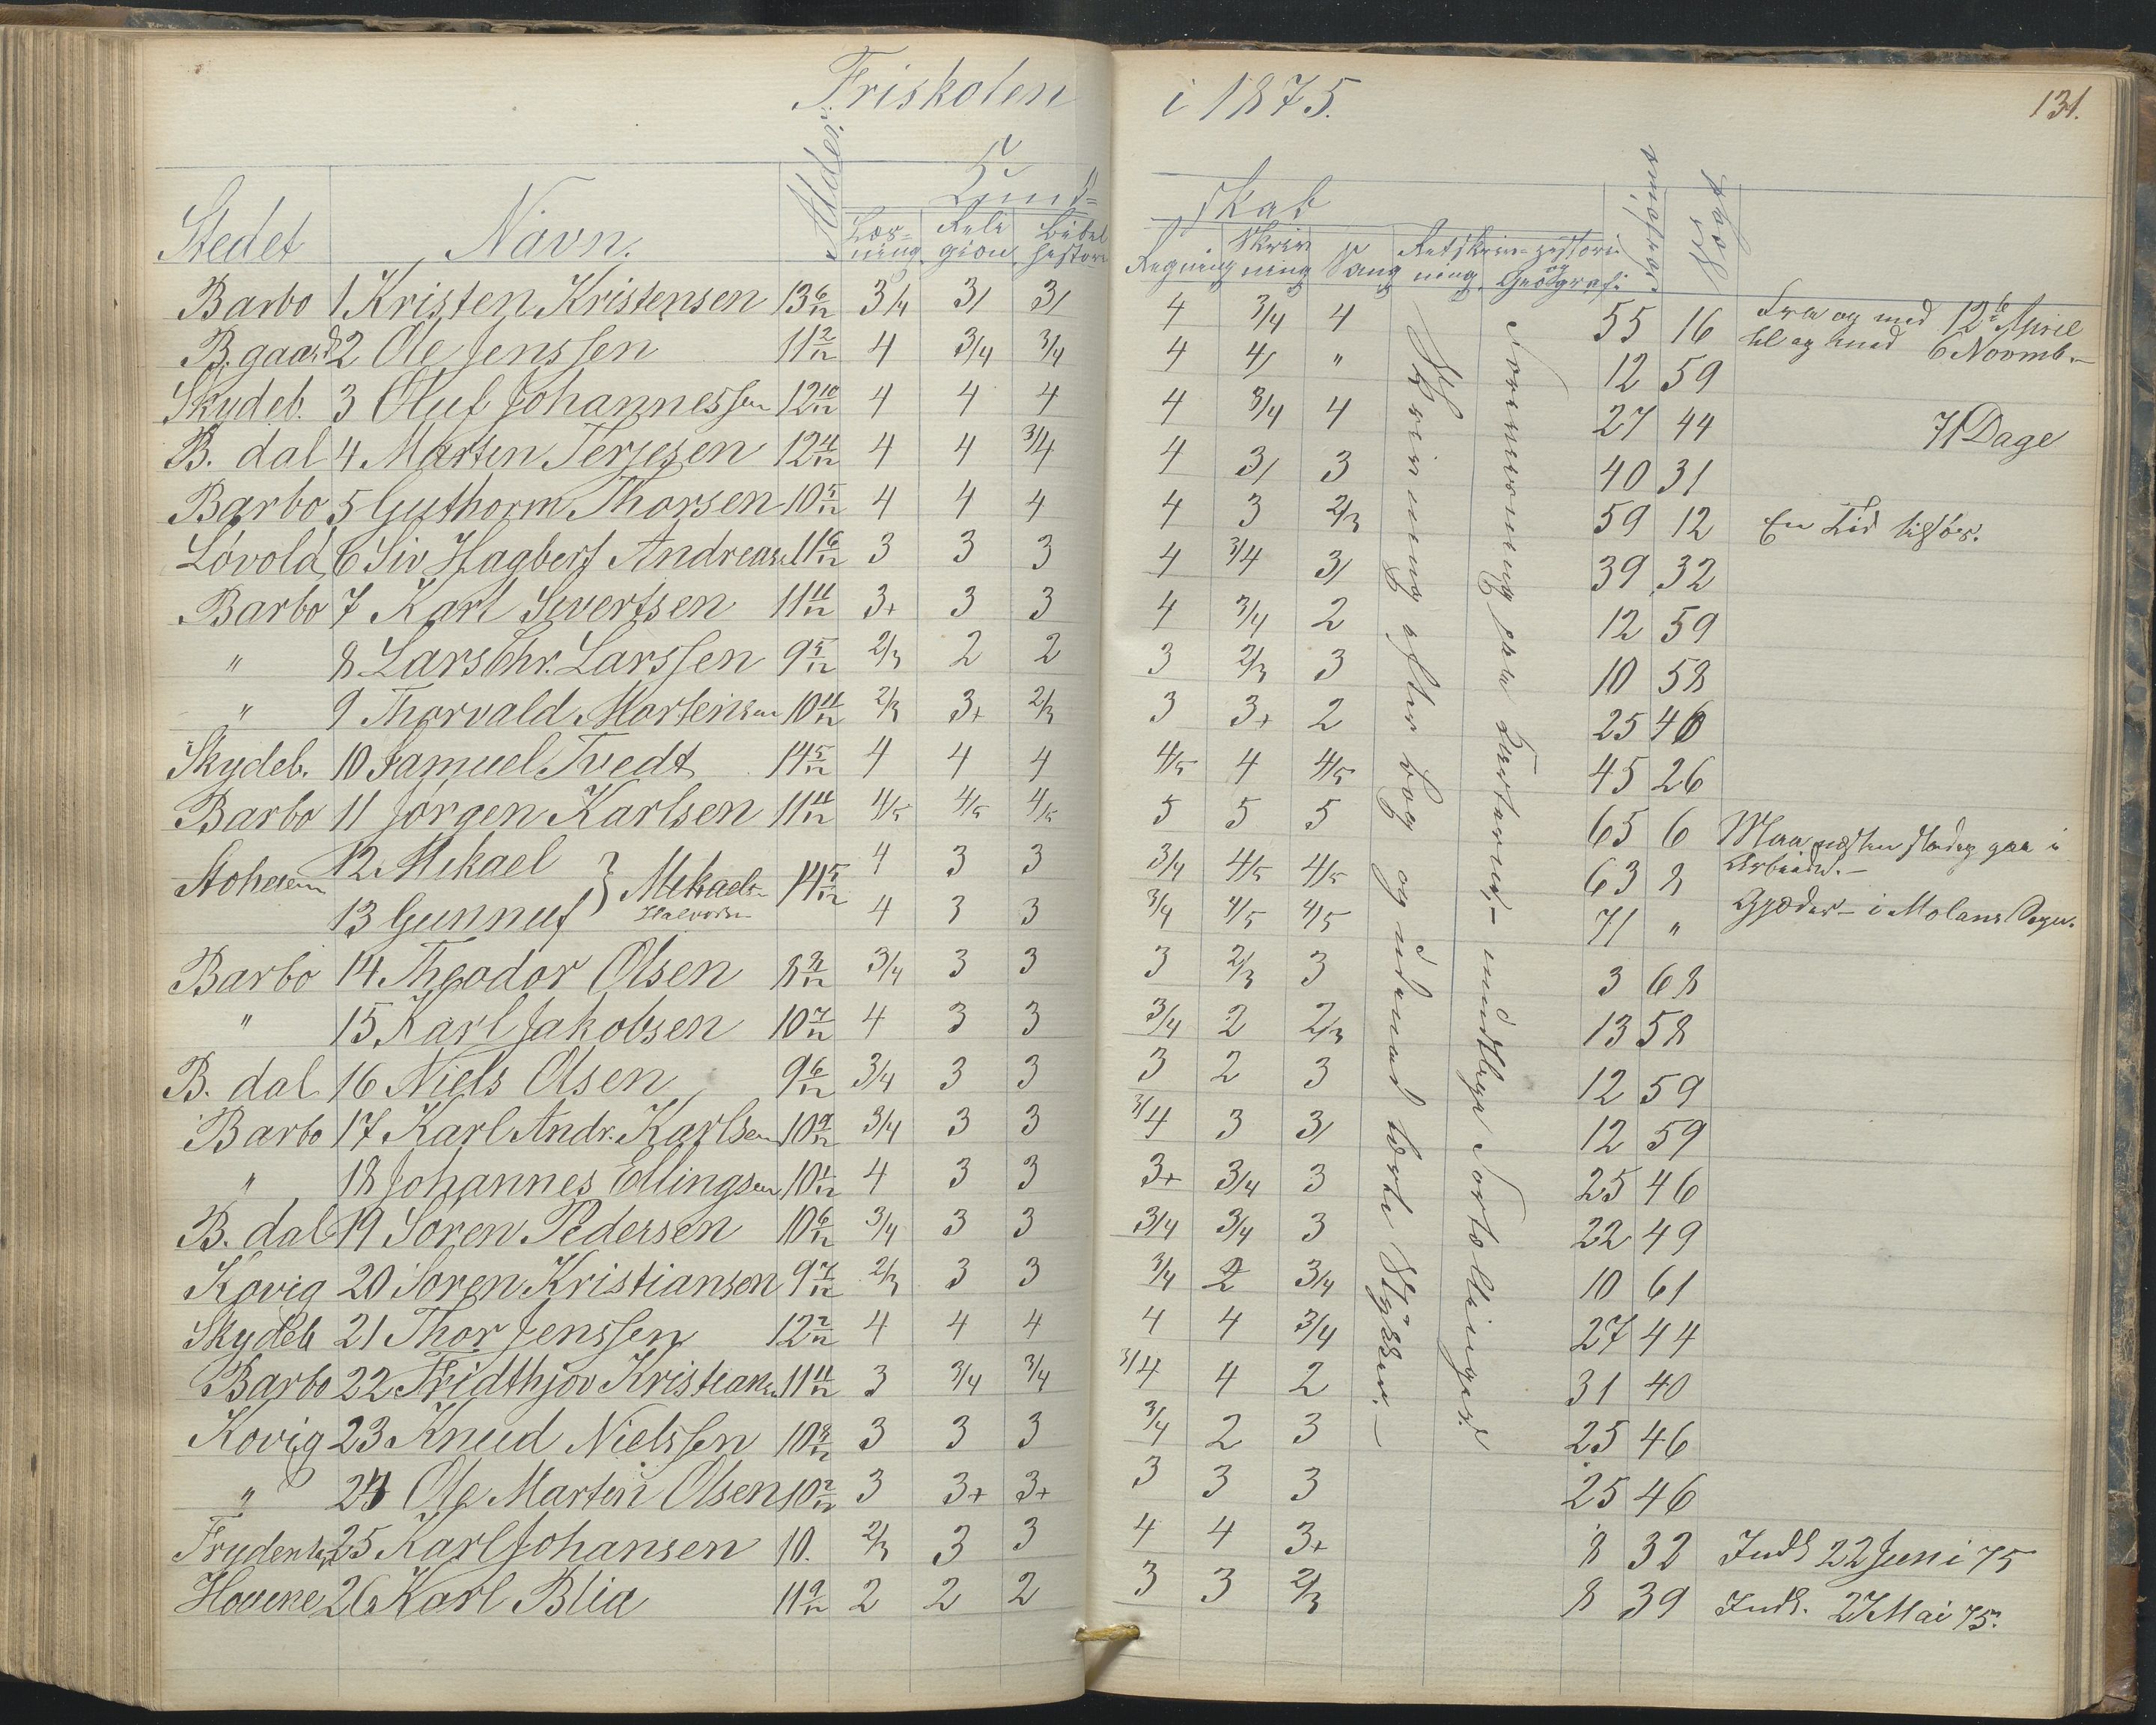 Friskolen i 1875. 131.
Stedet Navn. Alder. Kund= skab
Læs= ning Reli gion Bibel histori Regning Skriv ning Sang Retskriv= ning Historie og Geografi forsømt
Barbo 1 Kristen Kristensen 13 6/12 3/4 3/ 3/ 4 3/4 4 55 16 Fra og med 12te April
B.gaard 2 Ole Jenssen 11 2/12 4 3/4 3/4 4 4/ " 12 59 til og med 6 Novmb.
Skydeb. 3 Oluf Johannessen 12 10/12 4 4 4 4 3/4 4 27 44 71 Dage
B. dal 4 Martin Terjesen 12 4/12 4 4 3/4 4 3/ 3 40 31
Barbo 5 Guthorm Thorsen 10 5/12 4 4 4 4 3 2/3 59 12 En Tid tilsøs.
Lövold 6 Siv Hagbert Andreas. 11 6/12 3 3 3 4 3/4 3/ 39 32
Barbo 7 Karl Sivertsen 11 11/12 3+ 3 3 4 3/4 2 12 59
" 8 Lars Chr. Larssen 9 5/12 2/3 2 2 3 2/3 3 10 58
" 9 Thorvald Mortensen 10 11/12 2/3 3+ 2/3 3 3+ 2 25 46
Skydeb. 10 Samuel Tvedt 14 5/12 4 4 4 4/5 4 4/5 45 26
Barbo 11 Jörgen Karlsen 11 11/12 4/5 4/5 4/5 5 5 5 65 6 Maa næsten stadig gaa i
12 Mikael 4 3 3 3/4 4/5 4/5 63 8 Arbeide.
13 Gunnuf } 14 5/12 4 3 3 3/4 4/5 4/5 71 " i Molans
Barbo 14 Theodor Olsen 8 8/12 3/4 3 3 3 2/3 3 3 68
" 15 Karl Jakobsen 10 7/12 4 3 3 3/4 2 2/3 13 58
B. dal 16 Niels Olsen 9 6/12 3/4 3 3 3 2 3 12 59
Barbo 17 Karl Andr. Karlsen 10 9/12 3/4 3 3 3/4 3 3/ 12 59
" 18 Johannes Ellingsen 10 1/12 4 3 3 3+ 3/4 3 25 46
B. dal 19 Sören Pedersen 10 6/12 3/4 3 3 3/4 3/4 3 22 49
Kovig 20 Sören Kristiansen 9 7/12 2/3 3 3 3/4 2 3/4 10 61
Skydeb 21 Thor Jenssen 12 2/12 4 4 4 4 4 3/4 27 44
Barbo 22 Fridthjov Kristians. 11 11/12 3 3/4 3/4 3/4 4 2 31 40
Kovig 23 Knud Nielssen 10 8/12 3 3 3 3/4 2 3 25 46
" 24 Ole Martin Olsen 10 2/12 3 3+ 3+ 3 3 3 25 46
25 Karl Johansen 10. 2/3 3 3 4 4 3+ 8 32 Indk 22 Juni 75
26 Karl Blia 11 9/12 2 2 2 3 3 2/3 8 39 Indk. 27 Mai 75.
Skrivning efter Bog og udenad lærte Stykker.–
Forevisning paa Karterne – mundtlige Fortællinger.